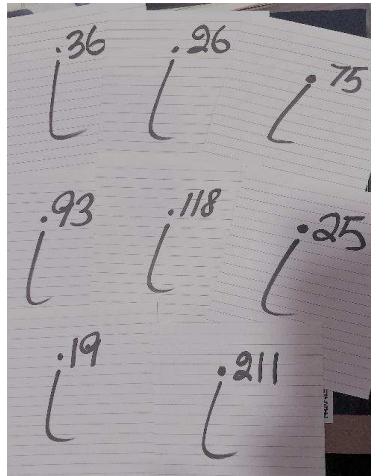 i³⁶ i²⁶ i⁷⁵
i⁹³ i¹¹⁸ i²⁵
i¹⁹ i²¹¹